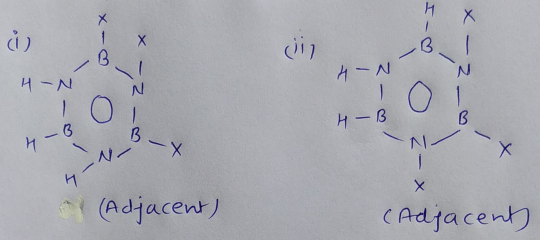 (i)
X
X
B
H - N
N
H - B
B - X
N
H
(Adjacent)
(ii)
H
X
B
H - N
N
H - B
B
N
X
X
(Adjacent)